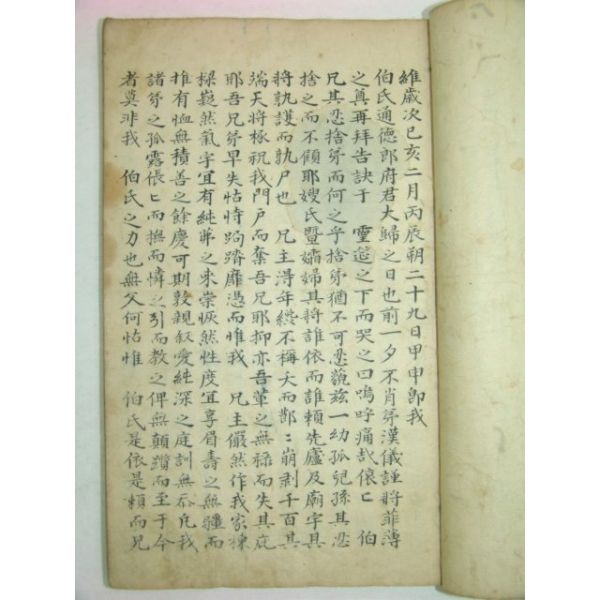 維歲次己亥二月丙辰朔二十九日甲申卽我
伯氏通德郎府君大歸之日也前一夕不肖弟漢儀謹將菲薄
之奠再拜告訣于 靈筵之下而哭之曰嗚呼痛哉 伯
兄其忍捨弟而何之乎捨弟猶不可忍藐玆一幼孤兒孫其忍
捨之而不顧耶嫂氏暨孀婦其將誰依而誰賴先廬及廟宇其
將孰護而孰尸也 兄主得年縱不稱夭而鄙: 崩剥千百其
端天將椓祝我門戶而奪吾兄耶抑亦吾輩之無祿而失其庇
耶吾兄弟早失怙恃跼踏靡憑而惟我 兄主儼然作我家棟
樑嶷然氣宇宜有純嘏之來崇恢然性度宜享眉壽之無疆而
惟有恤無積善之餘慶可期敦親叙愛純深之庭訓無忝凡我
諸弟之孤露倀匕而撫而憐之引而教之俾無顛躓而至于今
者莫非我 伯氏之力也無父何怙惟 伯氏是依是賴而兄